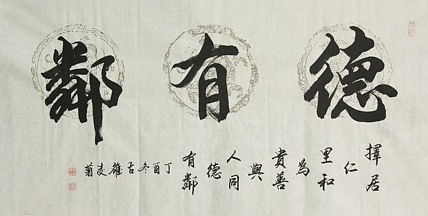 德有鄰
擇居
仁
里和
為
貴善
與
人同
德
有鄰
丁酉冬古雍菊